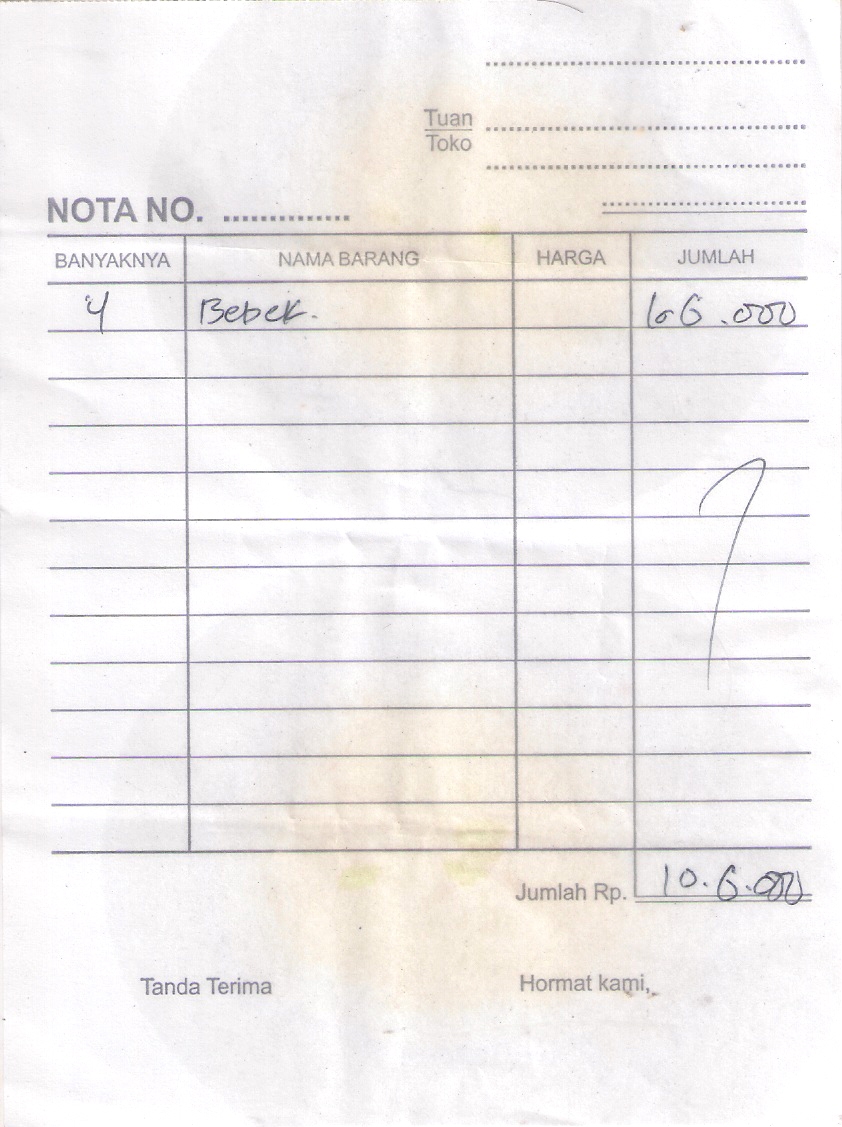 Tuan
Toko
NOTA NO. ..............
BANYAKNYA NAMA BARANG HARGA JUMLAH
4 Bebek. 106.000
Jumlah Rp. 10.6.000
Tanda Terima Hormat kami,